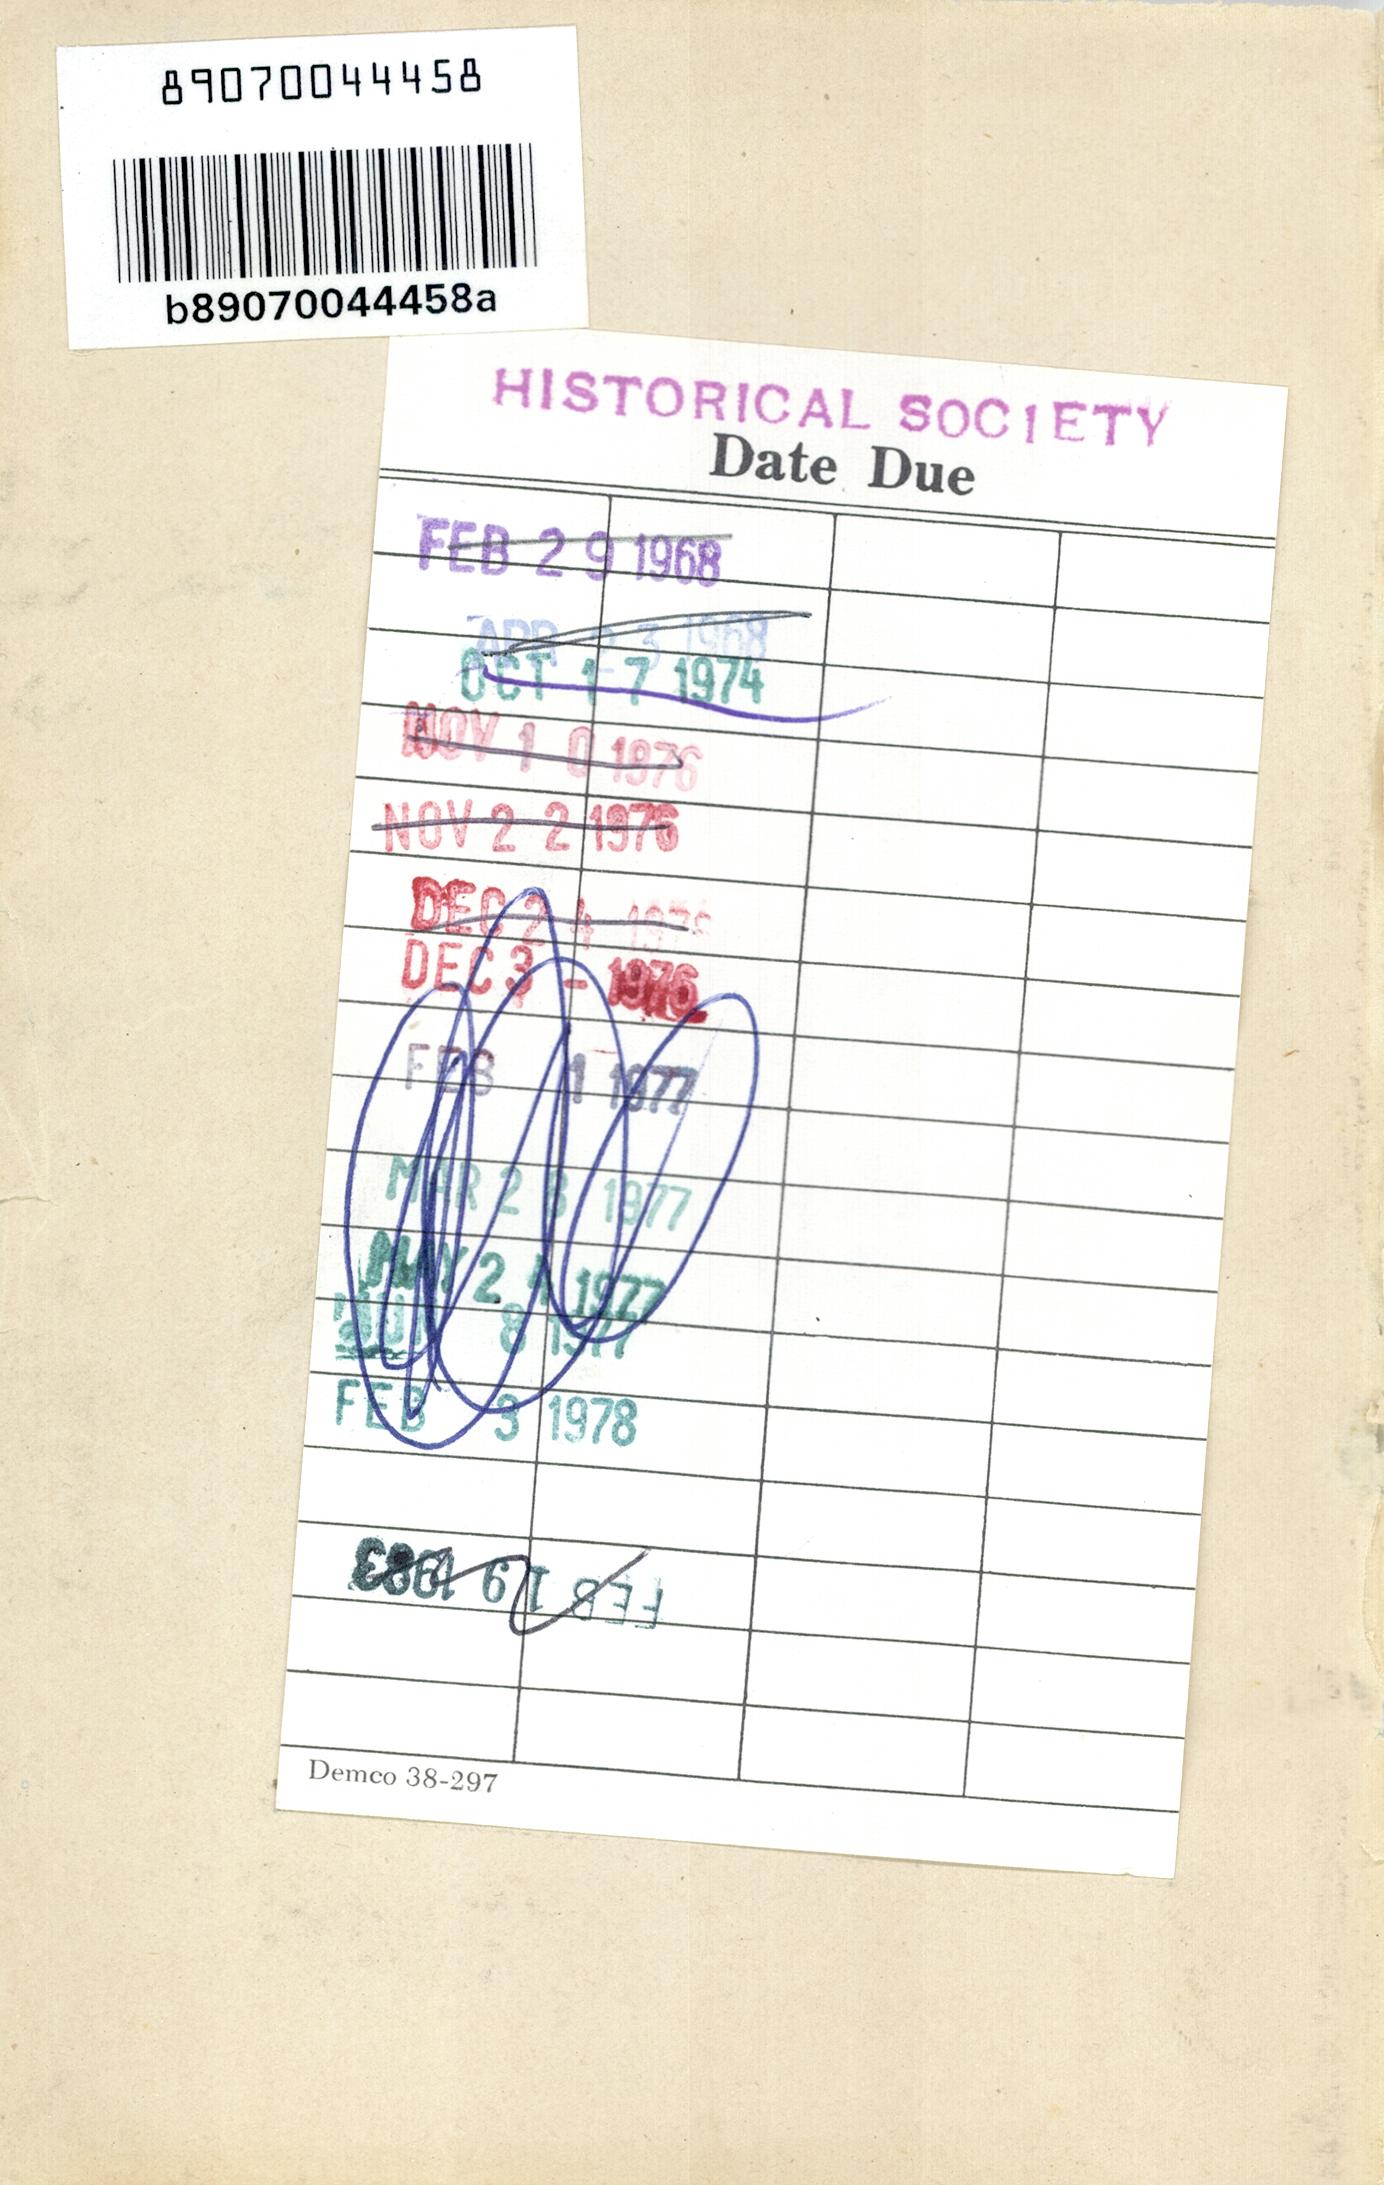 89070044458
b89070044458a
HISTORICAL SOCIETY
Date Due
FEB 29 1968
APR 23 1968
OCT 17 1974
NOV 10 1976
NOV 22 1976
DEC 24 1976
DEC 3 - 1976
FEB 1 1977
MAR 23 1977
MAY 24 1977
JUN 8 1977
FEB 3 1978
FEB 19 1983
Demco 38-297